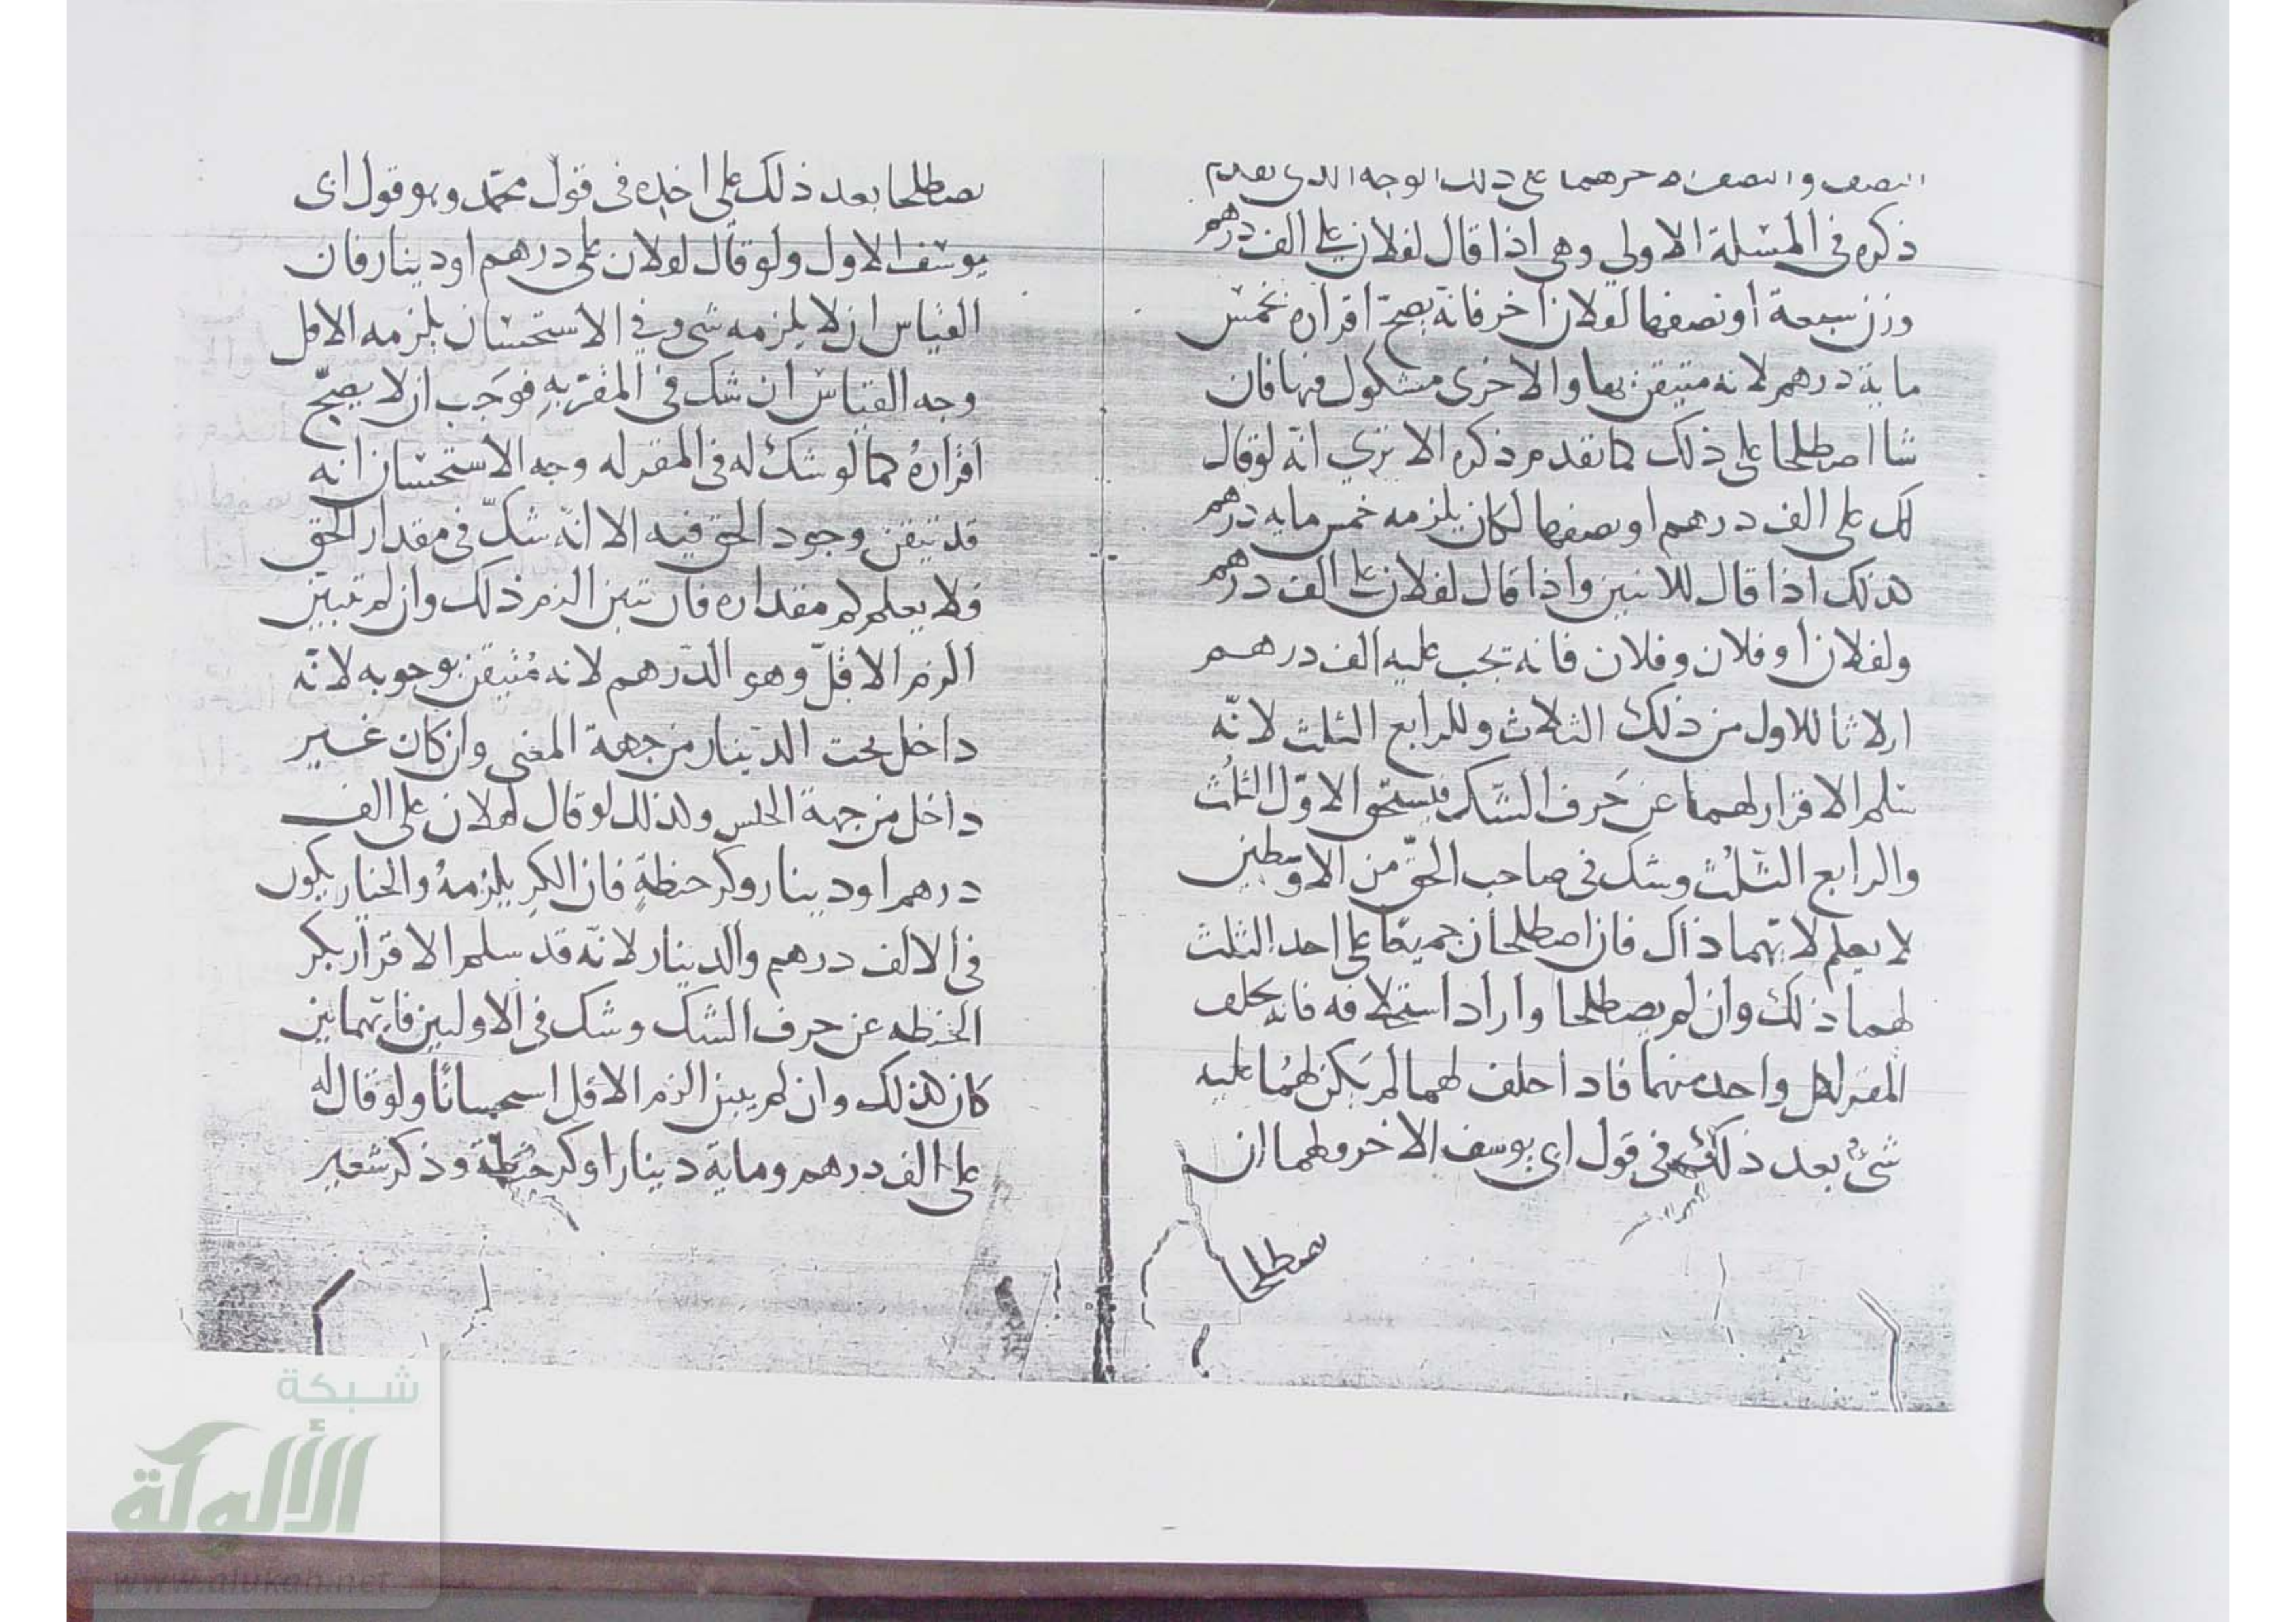 النصف والنصف لاحرهما على ذلك الوجه الذي تقدم
ذكره في المسئلة الاولى وهي اذا قال لفلان علي الف درهم
وزن سبعة أو نصفها لفلان آخر فانه يصح اقراره بخمس
ماية درهم لانه متيقن بها والاخرى مشكول فيها فان
شاا اصطلحا على ذلك كما تقدم ذكره الا تري انه لو قال
لك على الف درهم او نصفها لكان يلزمه خمس مايه درهم
كذلك اذا قال للاثنين واذا قال لفلان على الف درهم
ولفلان أو فلان وفلان فانه تجب عليه الف درهم
اثلاثا للاول من ذلك الثلاث وللرابع الثلث لانه
سلم الاقرار لهما عن حرف الشك فيستحق الاول الثلث
والرابع الثلث وشك في صاحب الحق من الاوسطين
لا يعلم لايهما ذاك فان اصطلحا جميعا على احد الثلث
لهما ذلك وان لم يصطلحا واراد استحلافه فانه يحلف
المقر لكل واحد منهما فاذا حلف لهما لم يكن لهما عليه
شيء بعد ذلك في قول ابي يوسف الاخر ولهما ان
يصطلحا
يصطلحا بعد ذلك على اخذه في قول محمد وهو قول ابى
يوسف الاول ولو قال لفلان على درهم او دينار فان
القياس ان لا يلزمه شي وفي الاستحسان يلزمه الاقل
وجه القياس ان شك في المقر به فوجب ان لا يصح
اقراره كما لو شك له في المقر له وجه الاستحسان انه
قد تيقن وجود الحق فيه الا انه شك في مقدار الحق
فلا يعلم لم مقداره فان تبين الزم ذلك وان لم تبين
الزم الاقل وهو الدرهم لانه متيقن بوجوبه لانه
داخل تحت الدينار من جهة المعنى وان كان غير
داخل من جهة الجنس ولذلك لو قال لفلان على الف
درهم او دينار وكر حنطة فان الكر يلزمه والخيار يكون
في الالف درهم والدينار لانه قد سلم الاقرار بكر
الحنطه عن حرف الشك وشك في الاوليين فايهما بين
كان كذلك وان لم يبين الزم الاقل استحسانا ولو قال له
على الف درهم وماية دينار او كر حنطة وذكر شعير
شبكة
الألوكة
www.alukah.net